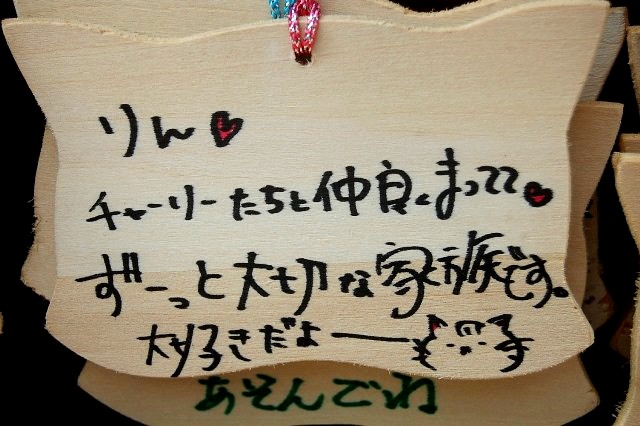 りん♥
チャーリーたちと仲良くまっててね♥
ずーっと大切な家族です。
大好きだよ――
あそんでね